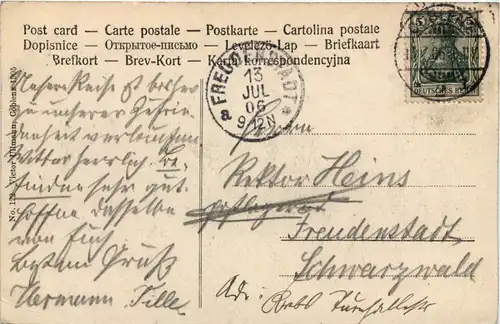 Post card — Carte postale — Postkarte — Cartolina postale
Dopisnice — Открытое-письмо — Levelező-Lap — Briefkaart
Brefkort — Brev-Kort — Karta korrespondencyjna
FREUDENSTADT
13
JUL
06
9-12N
a
DEUTSCHES REICH
Unsere Reise ist bisher
zu unserer Zufrie-
denheit verlaufen.
Wetter herrlich. Be-
finden sehr gut.
Hoffe dasselbe
von Euch
Besten Gruß
Hermann Tille
Herrn
Rektor Heins
Freudenstadt
Schwarzwald
Adr.